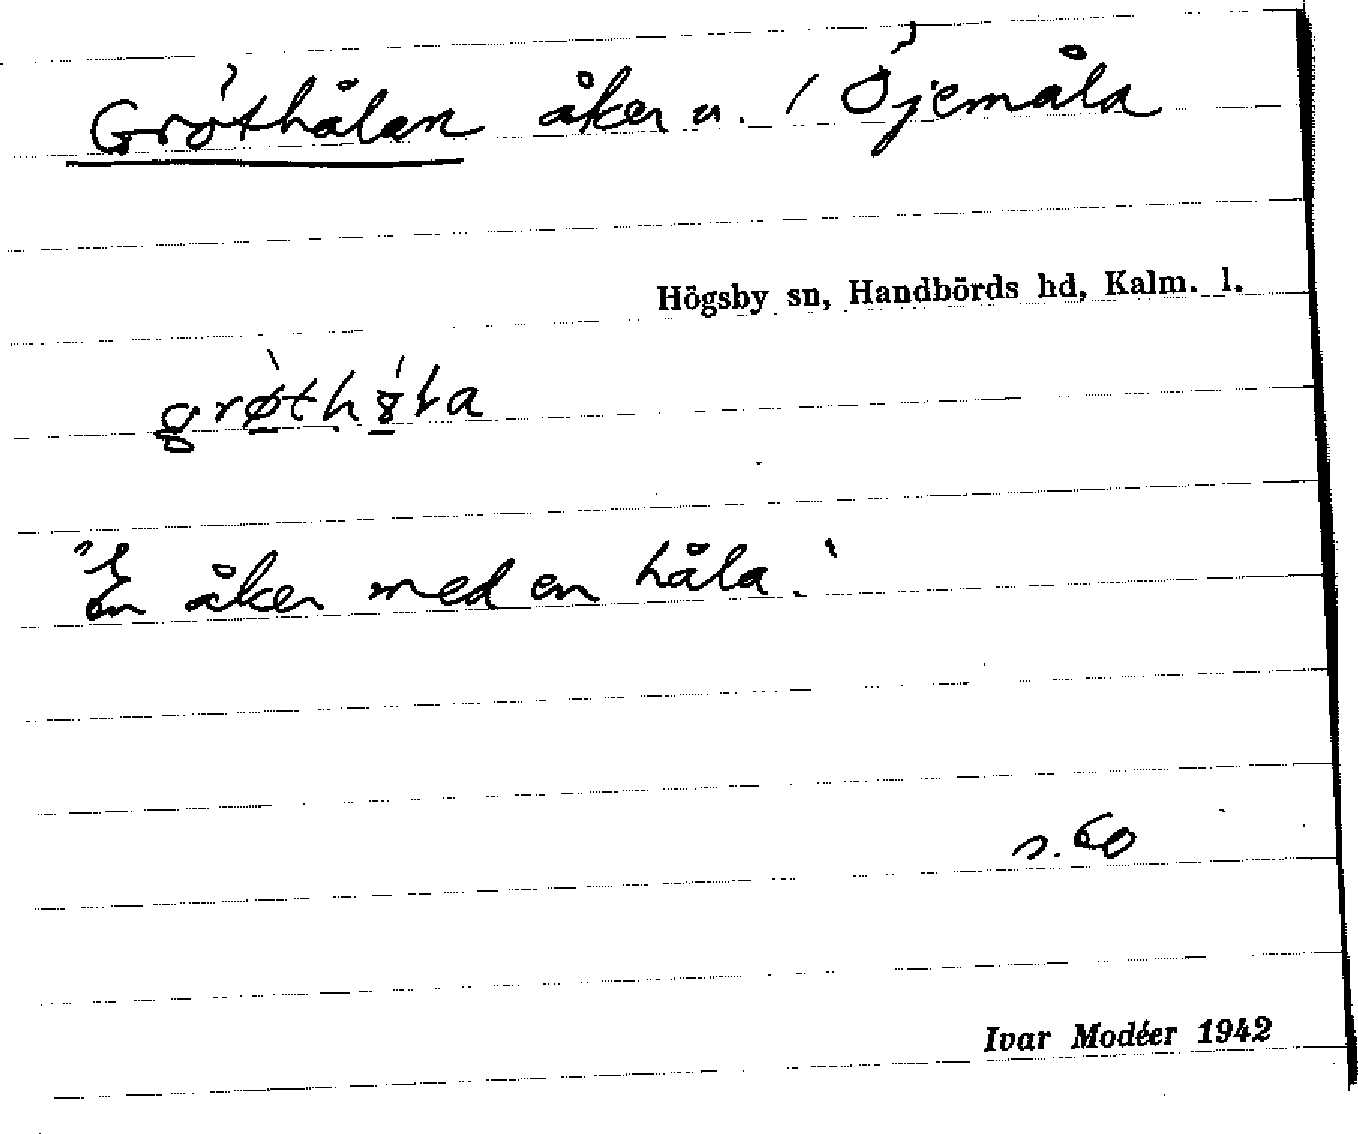 Gröthålan åker u. / Öjemåla
Högsby sn, Handbörds hd, Kalm. l.
"En åker med en håla."
s. 60
Ivar Modéer 1942